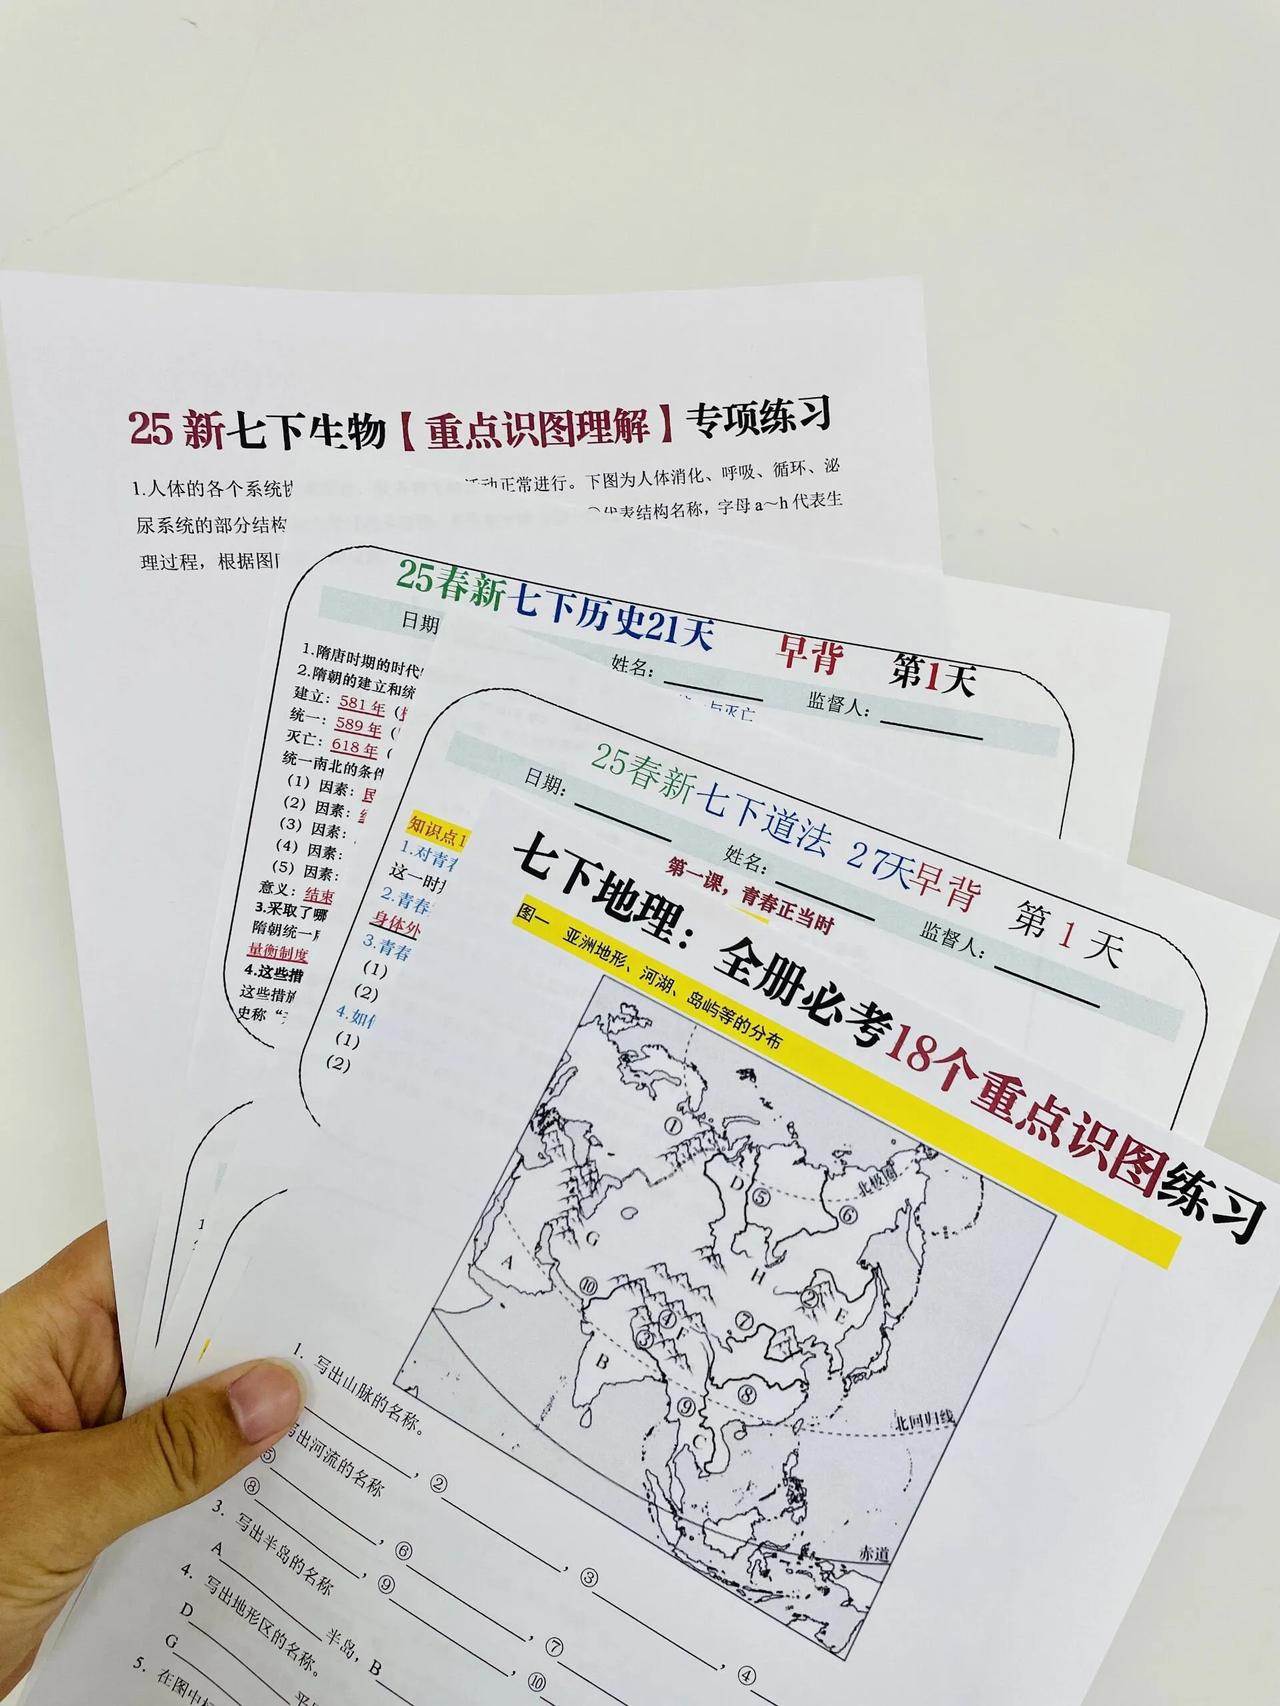 25 新七下生物【重点识图理解】专项练习
1.人体的各个系统
动正常进行。下图为人体消化、呼吸、循环、泌
尿系统的部分结构
代表结构名称，字母 a～h 代表生
理过程，根据图
25春新七下历史21天 早背 第1天
日期
姓名：
监督人：
1.隋唐时期的时代
2.隋朝的建立和统
与灭亡
建立：581 年（
统一：589 年（
灭亡：618 年（
统一南北的条件
（1）因素：
（2）因素：
（3）因素：
（4）因素：
（5）因素：
意义：结束
3.采取了哪
隋朝统一
量衡制度
4.这些措
这些措施
史称“
25春新七下道法 27天早背 第 1 天
日期：
姓名：
监督人：
第一课，青春正当时
知识点1
1.对青
这一时
2.青春
身体外
3.青春
（1）
（2）
4.如何
（1）
（2）
七下地理：全册必考18个重点识图练习
图一 亚洲地形、河湖、岛屿等的分布
①
D
⑤
北极圈
⑥
G
A
H
⑩
②
E
④
F
⑦
③
B
⑧
⑨
C
北回归线
赤道
1. 写出山脉的名称。
，②，③，④
写出河流的名称
⑤，⑥，⑦
⑧，⑨，⑩
3. 写出半岛的名称
A半岛，B
4. 写出地形区的名称。
D
G平
5. 在图中